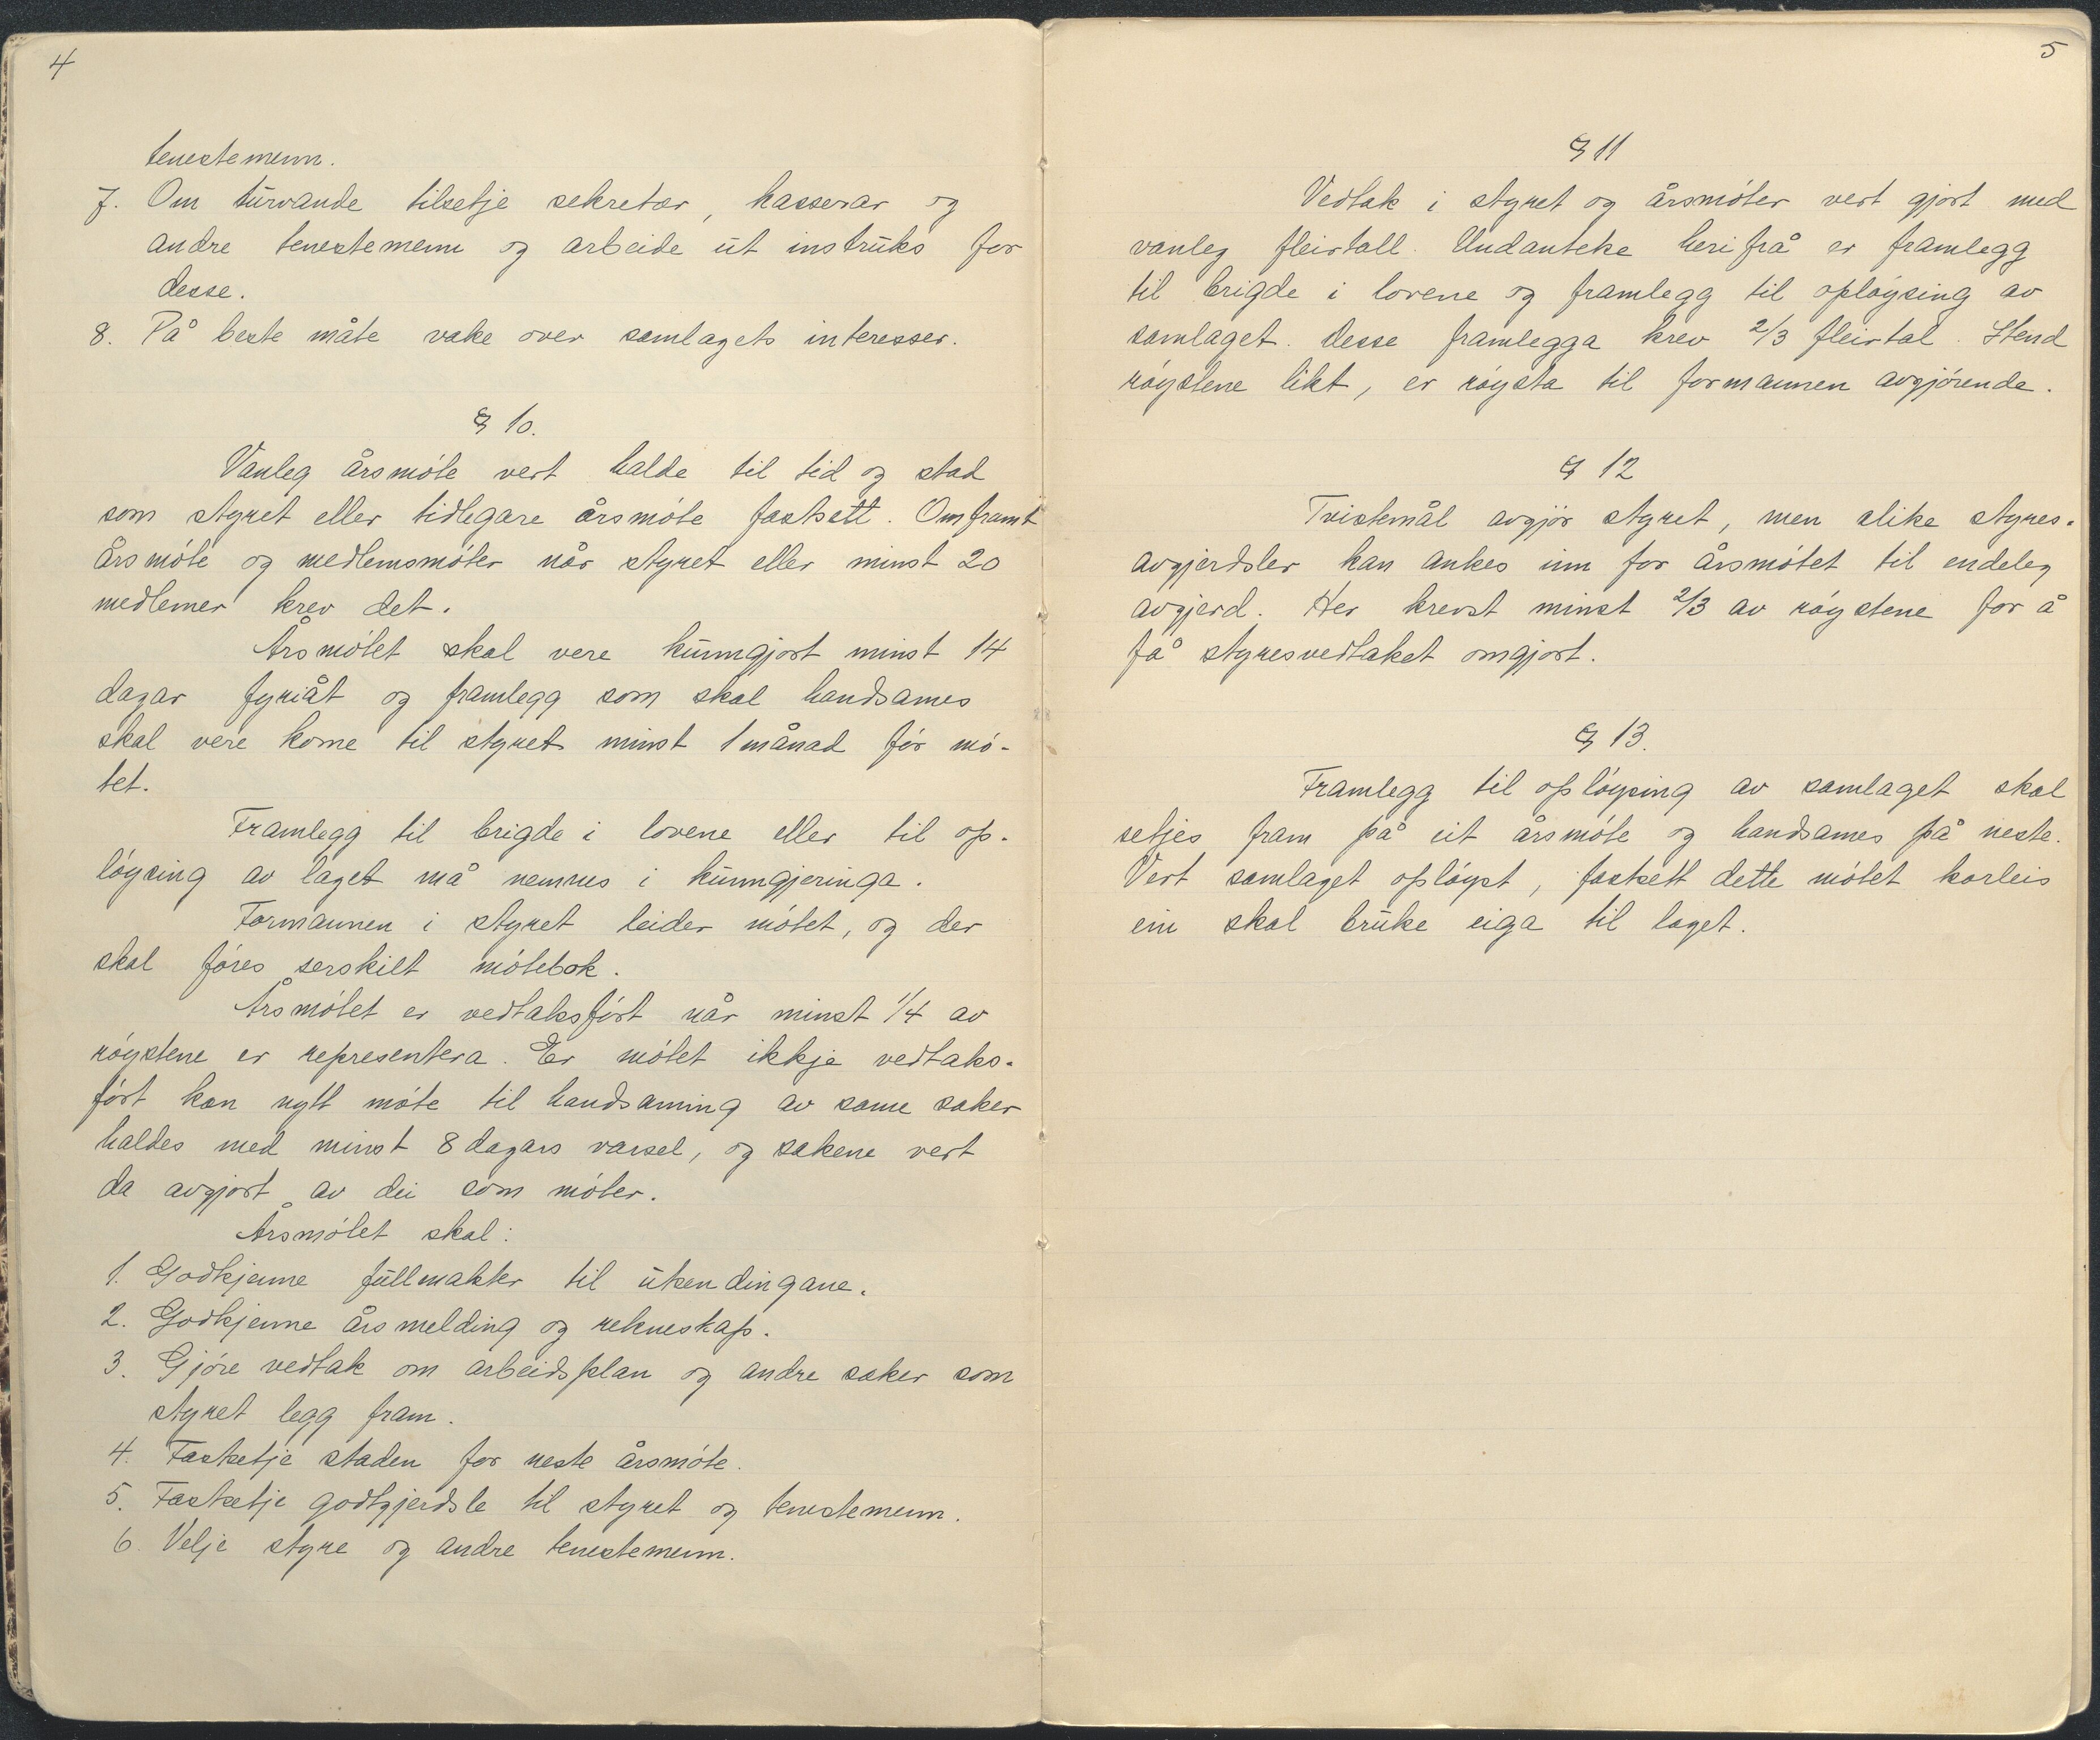 4
tenestemenn.
7. Om turvande tilsetje sekretær, kasserar og
andre tenestemenn og arbeide ut instruks for
desse.
8. På beste måte vake over samlagets interesser.
§ 10.
Vanleg årsmøte vert halde til tid og stad
som styret eller tidlegare årsmøte fastsett. Omframt
årsmøte og medlemsmøter når styret eller minst 20
medlemer krev det.
Årsmøtet skal vere kunngjort minst 14
dagar fyriåt og framlegg som skal handsames
skal vere kome til styret minst 1 månad før mø-
tet.
Framlegg til brigde i lovene eller til op-
løysing av laget må nemnes i kunngjeringa.
Formannen i styret leider møtet, og der
skal føres serskilt møtebok.
Årsmøtet er vedtaksført når minst 1/4 av
røystene er representera. Er møtet ikkje vedtaks-
ført kan nytt møte til handsaming av same saker
haldes med minst 8 dagars varsel, og sakene vert
da avgjort av dei som møter.
Årsmøtet skal:
1. Godkjenne fullmakter til utsendingane.
2. Godkjenne årsmelding og rekneskap.
3. Gjøre vedtak om arbeidsplan og andre saker som
styret legg fram.
4. Fastsetje staden for neste årsmøte.
5. Fastsetje godtgjerdsle til styret og tenestemenn.
6. Velje styre og andre tenestemenn.
5
§ 11
Vedtak i styret og årsmøter vert gjort med
vanleg fleirtall. Undanteke herifrå er framlegg
til brigde i lovene og framlegg til opløysing av
samlaget. Desse framlegga krev 2/3 fleirtal. Stend
røystene likt, er røysta til formannen avgjørende.
§ 12
Tvistemål avgjør styret, men slike styres-
avgjerdsler kan ankes inn for årsmøtet til endeleg
avgjerd. Her krevst minst 2/3 av røystene for å
få styresvedtaket omgjort.
§ 13.
Framlegg til opløysing av samlaget skal
setjes fram på eit årsmøte og handsames på neste.
Vert samlaget opløyst, fastsett dette møtet korleis
ein skal bruke eiga til laget.